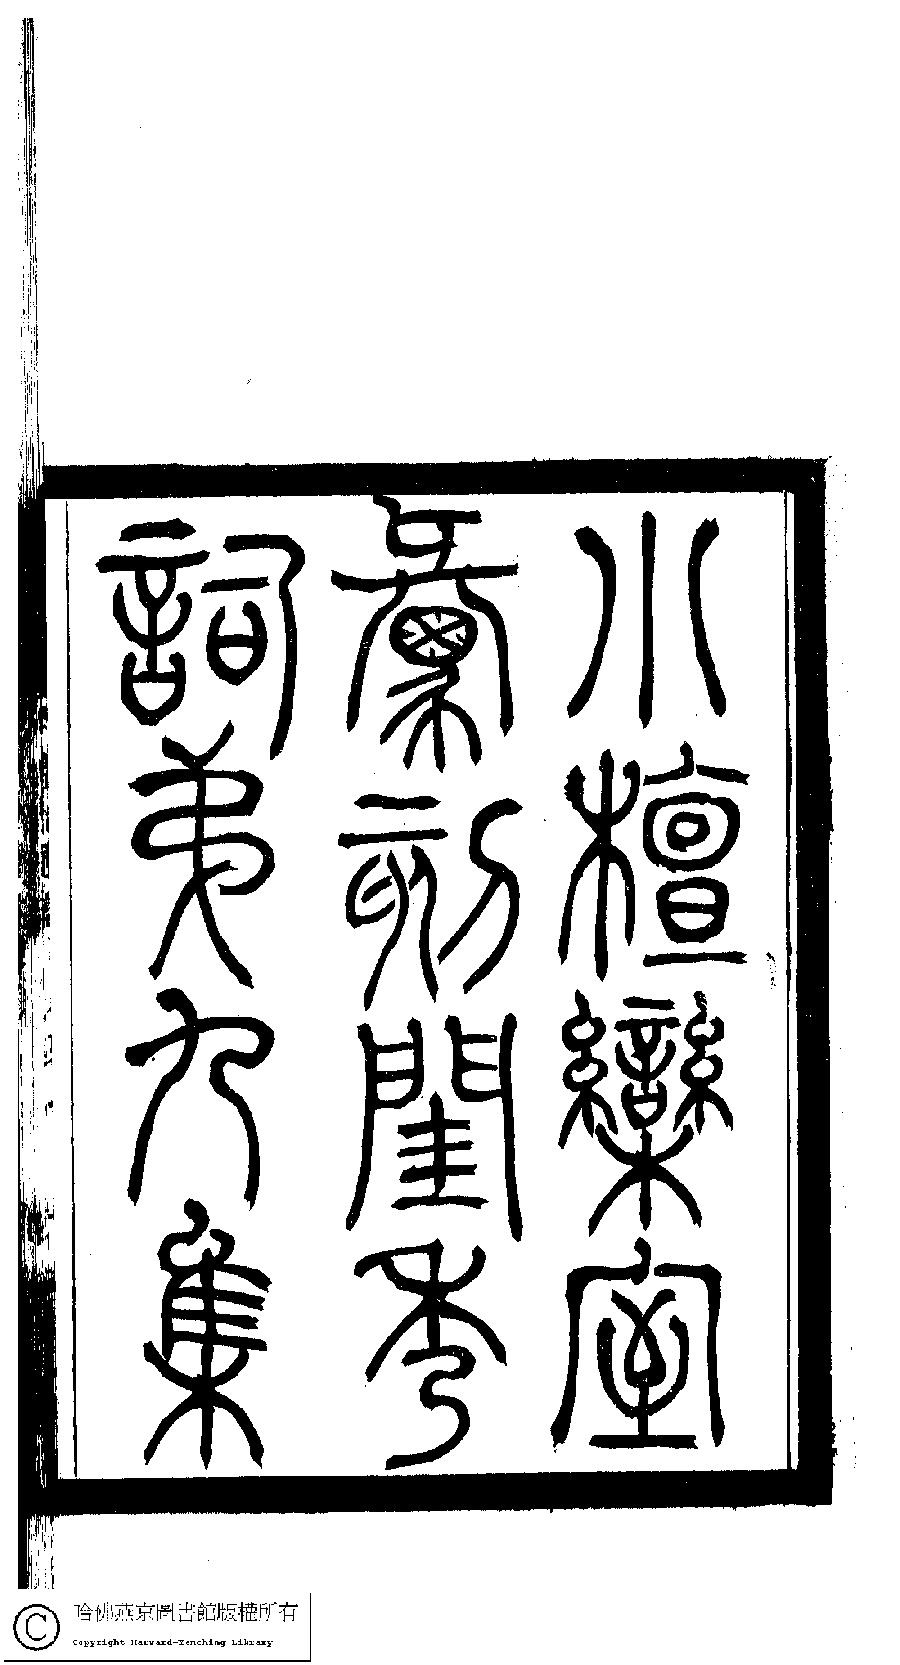 小檀欒室
彙刻閨秀
詞弟九集
哈佛燕京圖書館版權所有
Copyright Harvard-Yenching Library